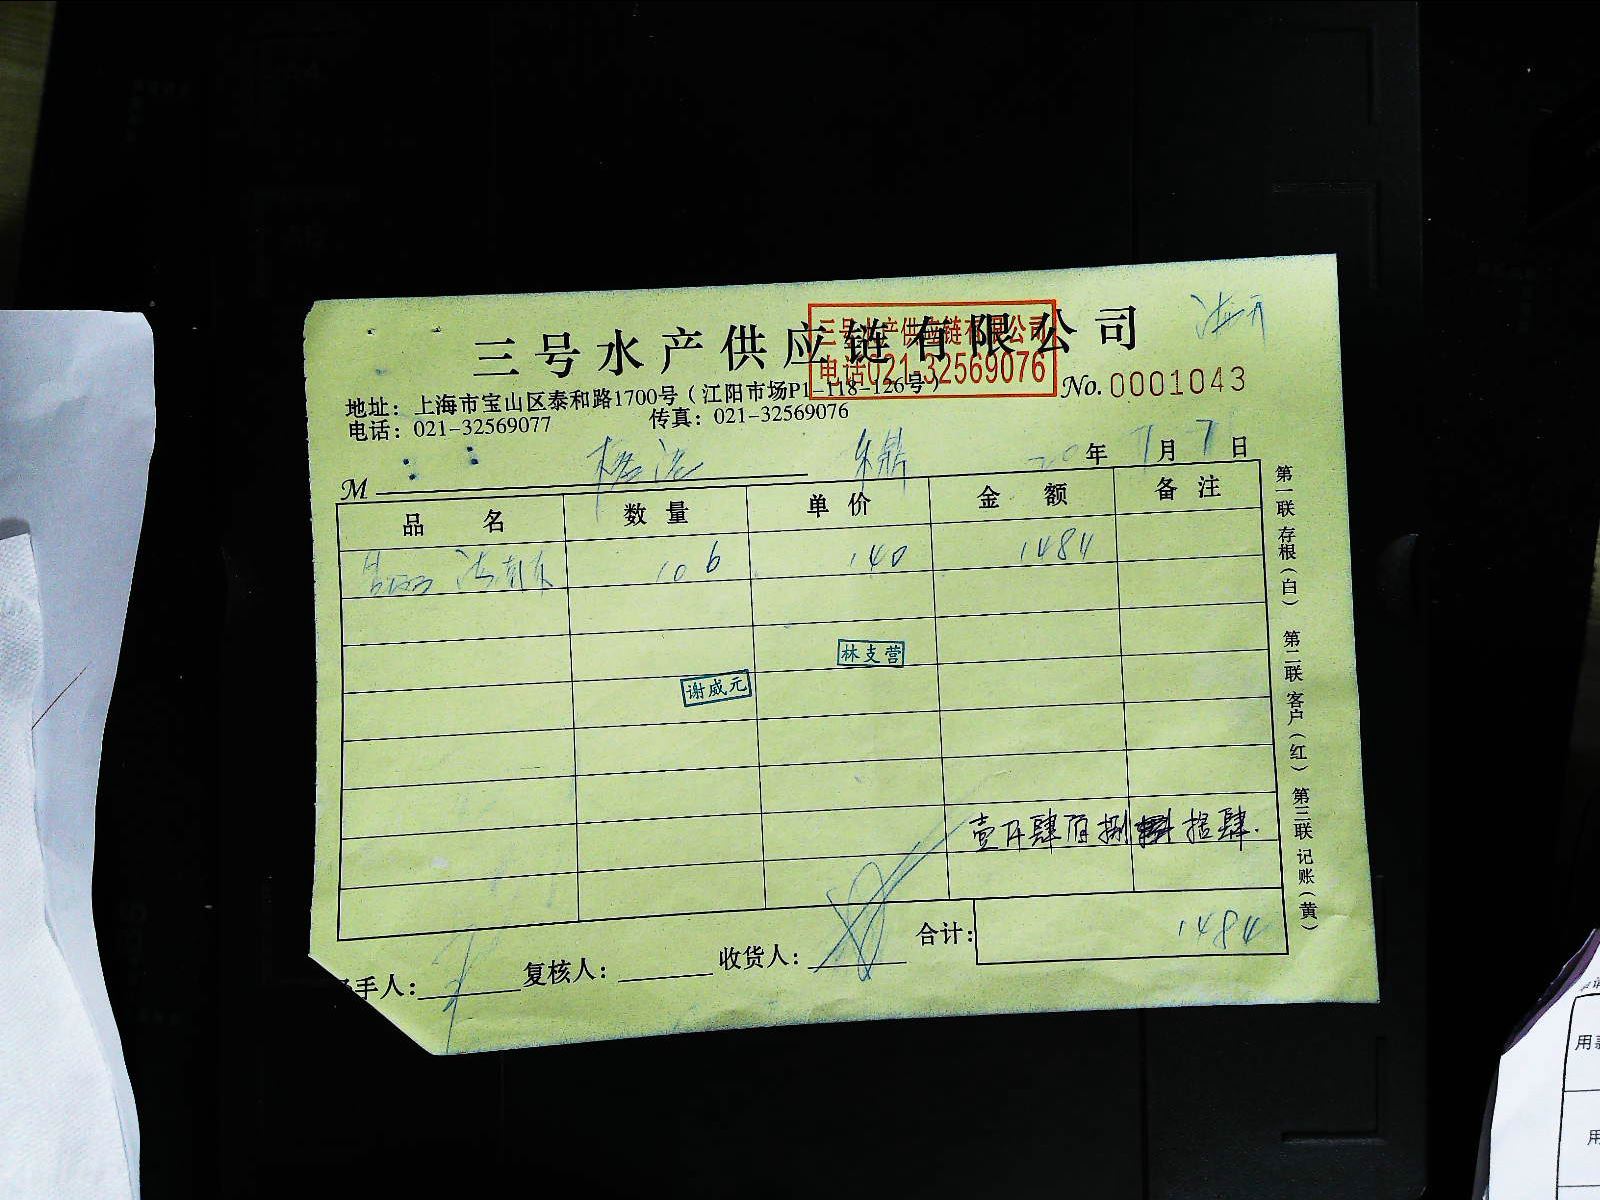 三号水产供应链有限公司
三号水产供应链有限公司
电话021-32569076
地址：上海市宝山区泰和路1700号（江阳市场P1-118-126号）
No. 0001043
电话：021-32569077 传真：021-32569076
20 年 7 月 7 日
M
品名 数量 单价 金额 备注
10 6 140 1484
林支营
谢威元
壹仟肆佰捌 拾肆.
合计： 1484
手人： 复核人： 收货人：
第一联 存根（白） 第二联 客户（红） 第三联 记账（黄）
用
用